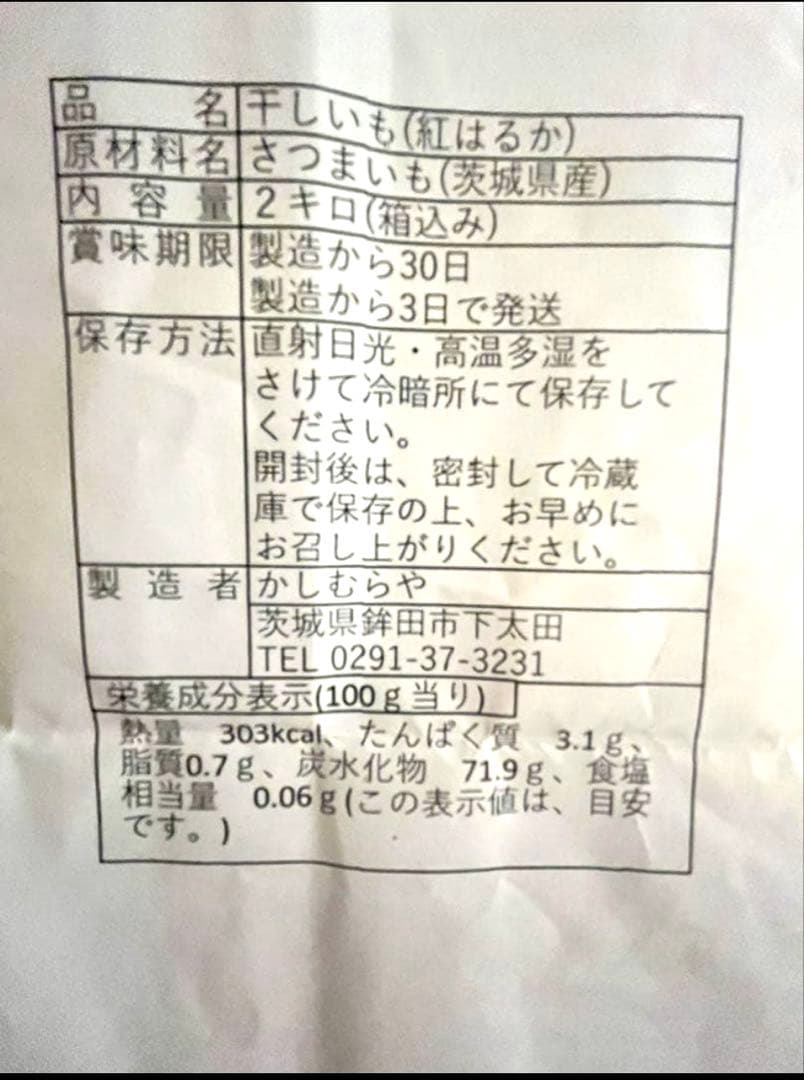 品名 干しいも(紅はるか)
原材料名 さつまいも(茨城県産)
内容量 2キロ(箱込み)
賞味期限 製造から30日
製造から3日で発送
保存方法 直射日光・高温多湿を
さけて冷暗所にて保存して
ください。
開封後は、密封して冷蔵
庫で保存の上、お早めに
お召し上がりください。
製造者 かしむらや
茨城県鉾田市下太田
TEL 0291-37-3231
栄養成分表示(100g当り)
熱量 303kcal、たんぱく質 3.1g、
脂質0.7g、炭水化物 71.9g、食塩
相当量 0.06g(この表示値は、目安
です。)